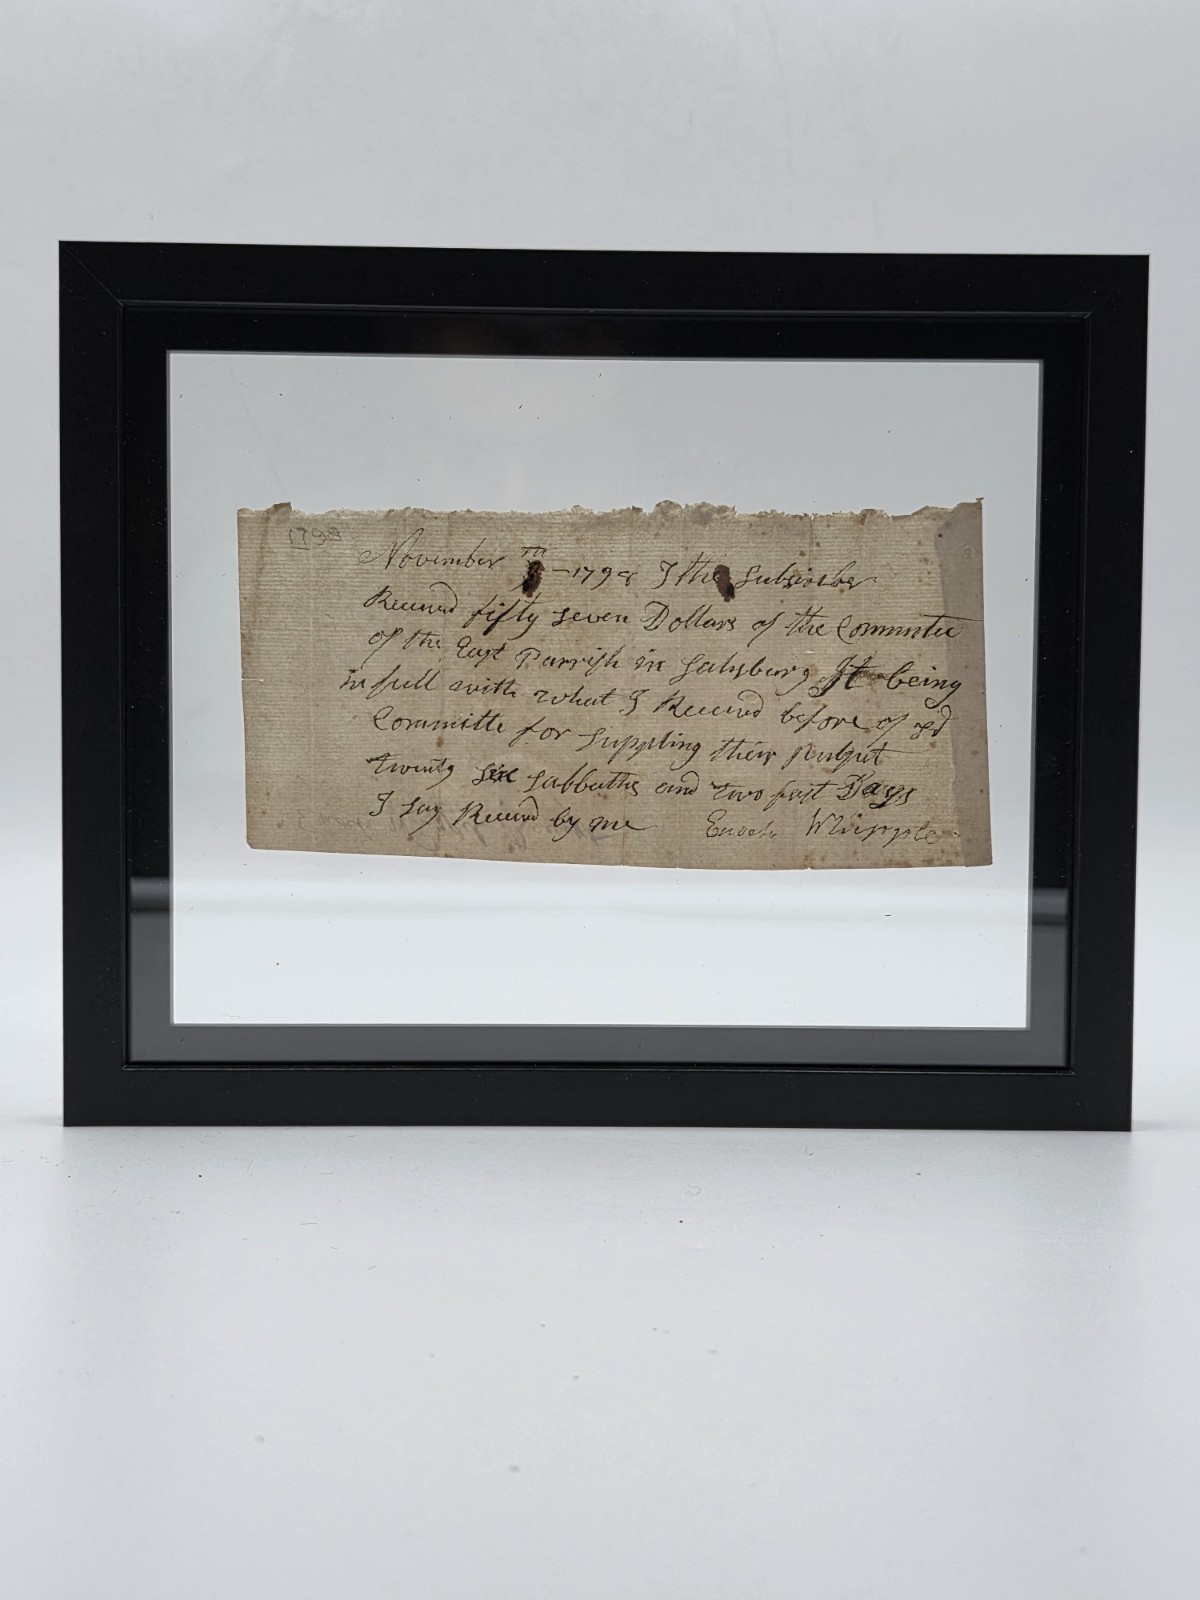 1798
November TH - 1798 I the Subscriber
Received fifty seven Dollars of the Committee
of the East Parrish in Salsburg It being
in full with what I Received before of sd
Committe for suppling their pulpit
twenty six sabbaths and two fast Days
I say Received by me Enoch Whipple